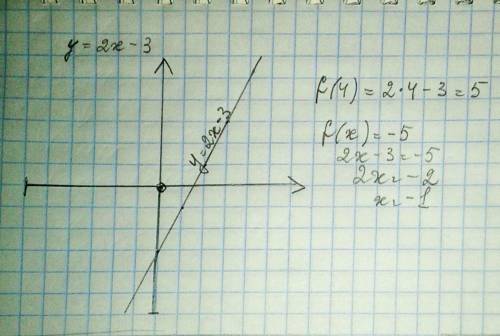 y = 2x - 3
y = 2x - 3
f(4) = 2·4 - 3 = 5
f(x) = -5
2x - 3 = -5
2x = -2
x = -1